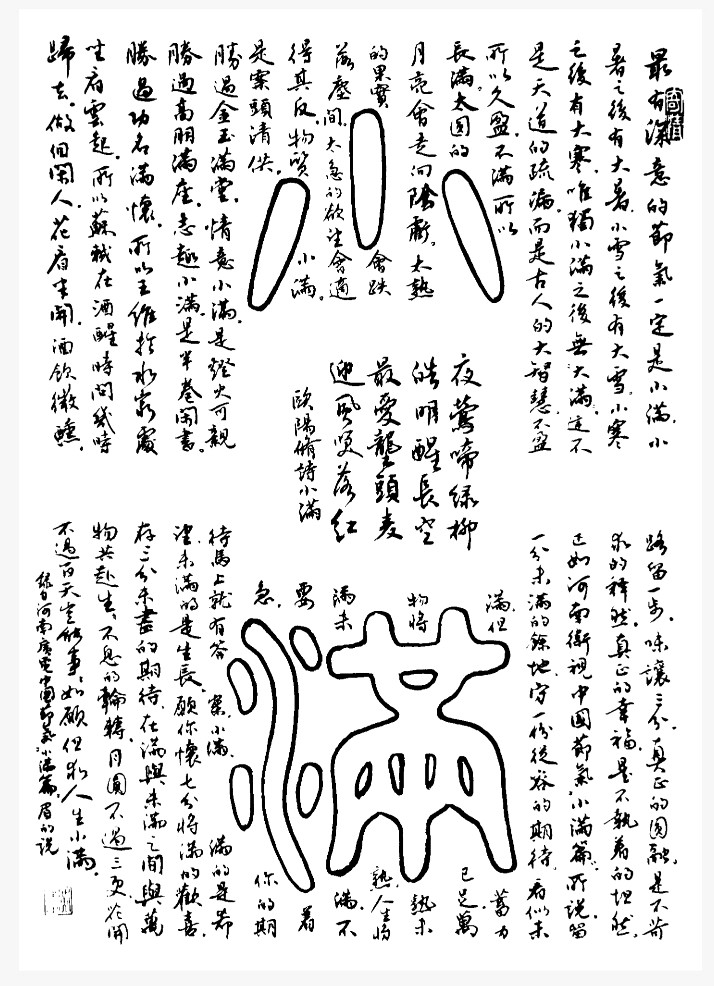 最有深意的節氣一定是小滿。小
暑之後有大暑。小雪之後有大雪。小寒
之後有大寒。唯獨小滿之後無大滿。這不
是天道的疏漏。而是古人的大智慧。不盈
所以久盈。不滿所以
長滿。太圓的
月亮會走向陰虧。太熟
的果實會跌
落塵間。太急的欲望會適
得其反。物質小滿。
是案頭清供。
勝過金玉滿堂。情意小滿。是燈火可親
勝過高朋滿座。志趣小滿。是半卷閑書。
勝過功名滿懷。所以王維於水窮處
坐看雲起。所以蘇軾在酒醒時問幾時
歸去。做個閑人。花看半開。酒飲微醺。
小滿
夜鶯啼綠柳
皓明醒長空
最愛壟頭麥
迎風笑落紅
歐陽脩詩小滿
路留一步。味讓三分。真正的圓融。是不苛
求的釋然。真正的幸福。是不執着的坦然。
正如河南衛視中國節氣。小滿篇。所說留
一分未滿的餘地。守一份從容的期待。看似未
滿。但蓄力
已足萬
物將熟未
熟。人生將
滿未滿。不
要着
急。你的期
待馬上就有答案。小滿。滿的是希
望。未滿的是生長。願你懷七分將滿的歡喜。
存三分未盡的期待。在滿與未滿之間與萬
物共赴生生不息的輪轉。月圓不過三更。花開
不過百天。豈能事事如願。但求人生小滿。
錄自河南廣電中國節氣小滿篇。眉的說